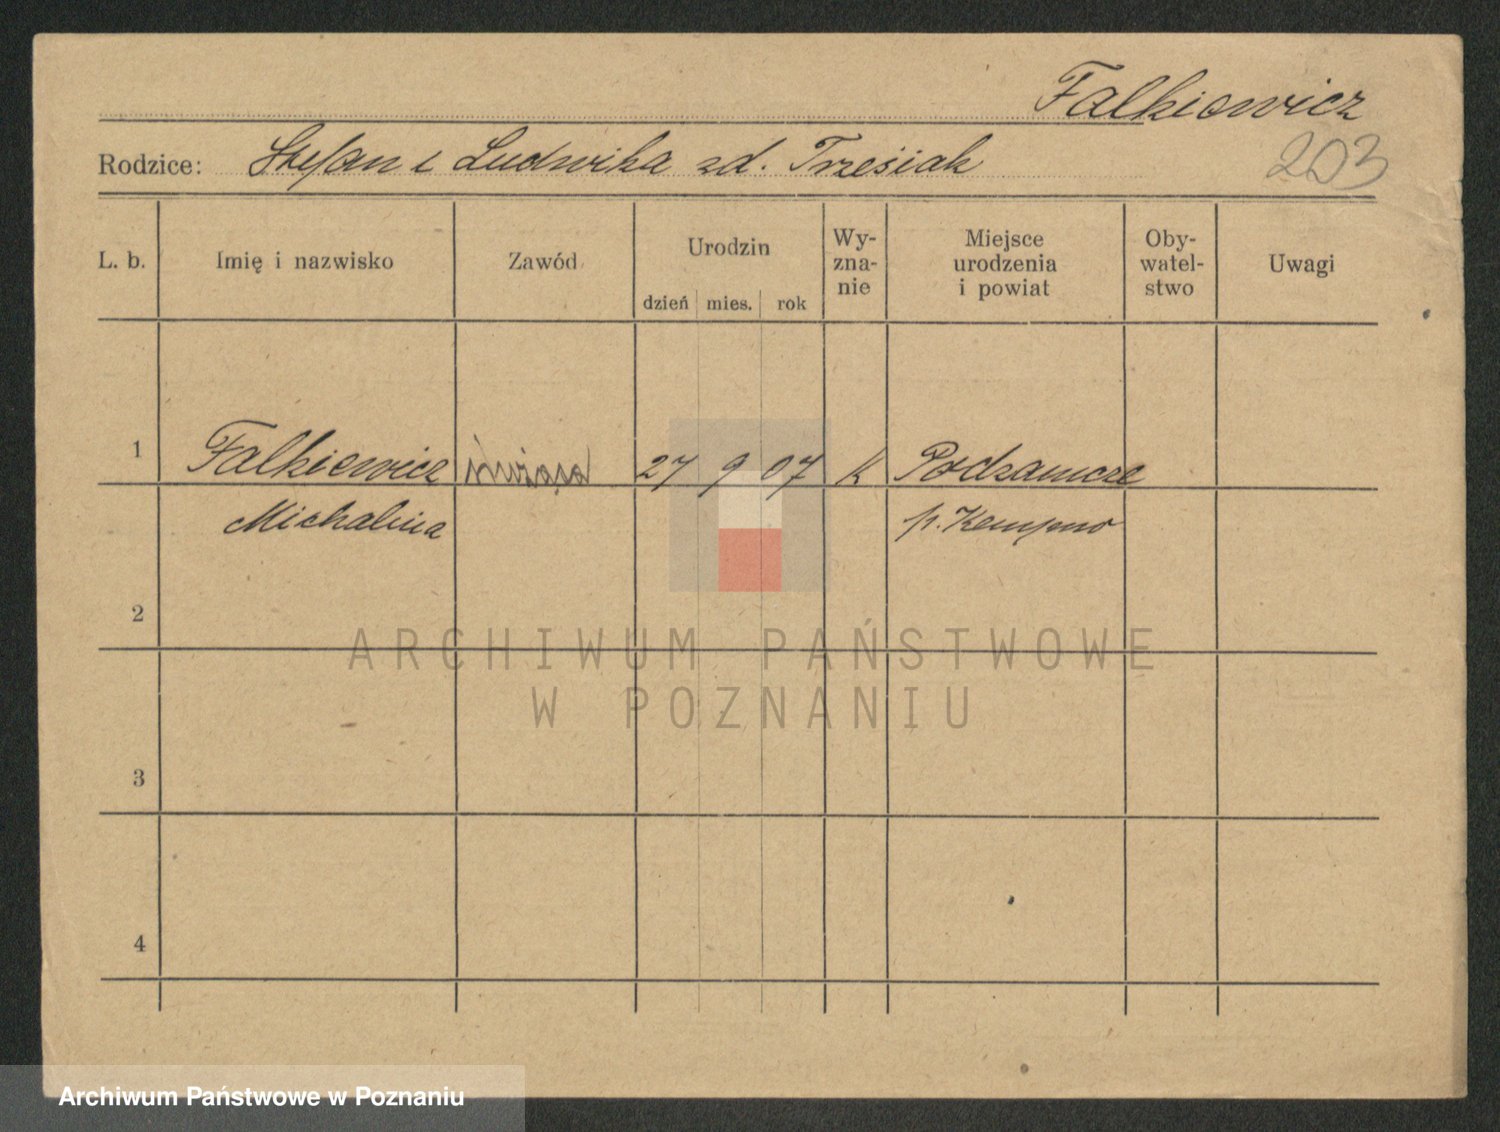 Falkiewicz
203
Rodzice: Stefan i Ludwika zd. Trześiak
L. b.
Imię i nazwisko
Zawód
Urodzin
dzień mies. rok
Wy-
zna-
nie
Miejsce
urodzenia
i powiat
Oby-
watel-
stwo
Uwagi
1 Falkiewicz 27 9 07 K Podzamcze
Michalina p. Kempno
2
3
4
ARCHIWUM PAŃSTWOWE
W POZNANIU
Archiwum Państwowe w Poznaniu